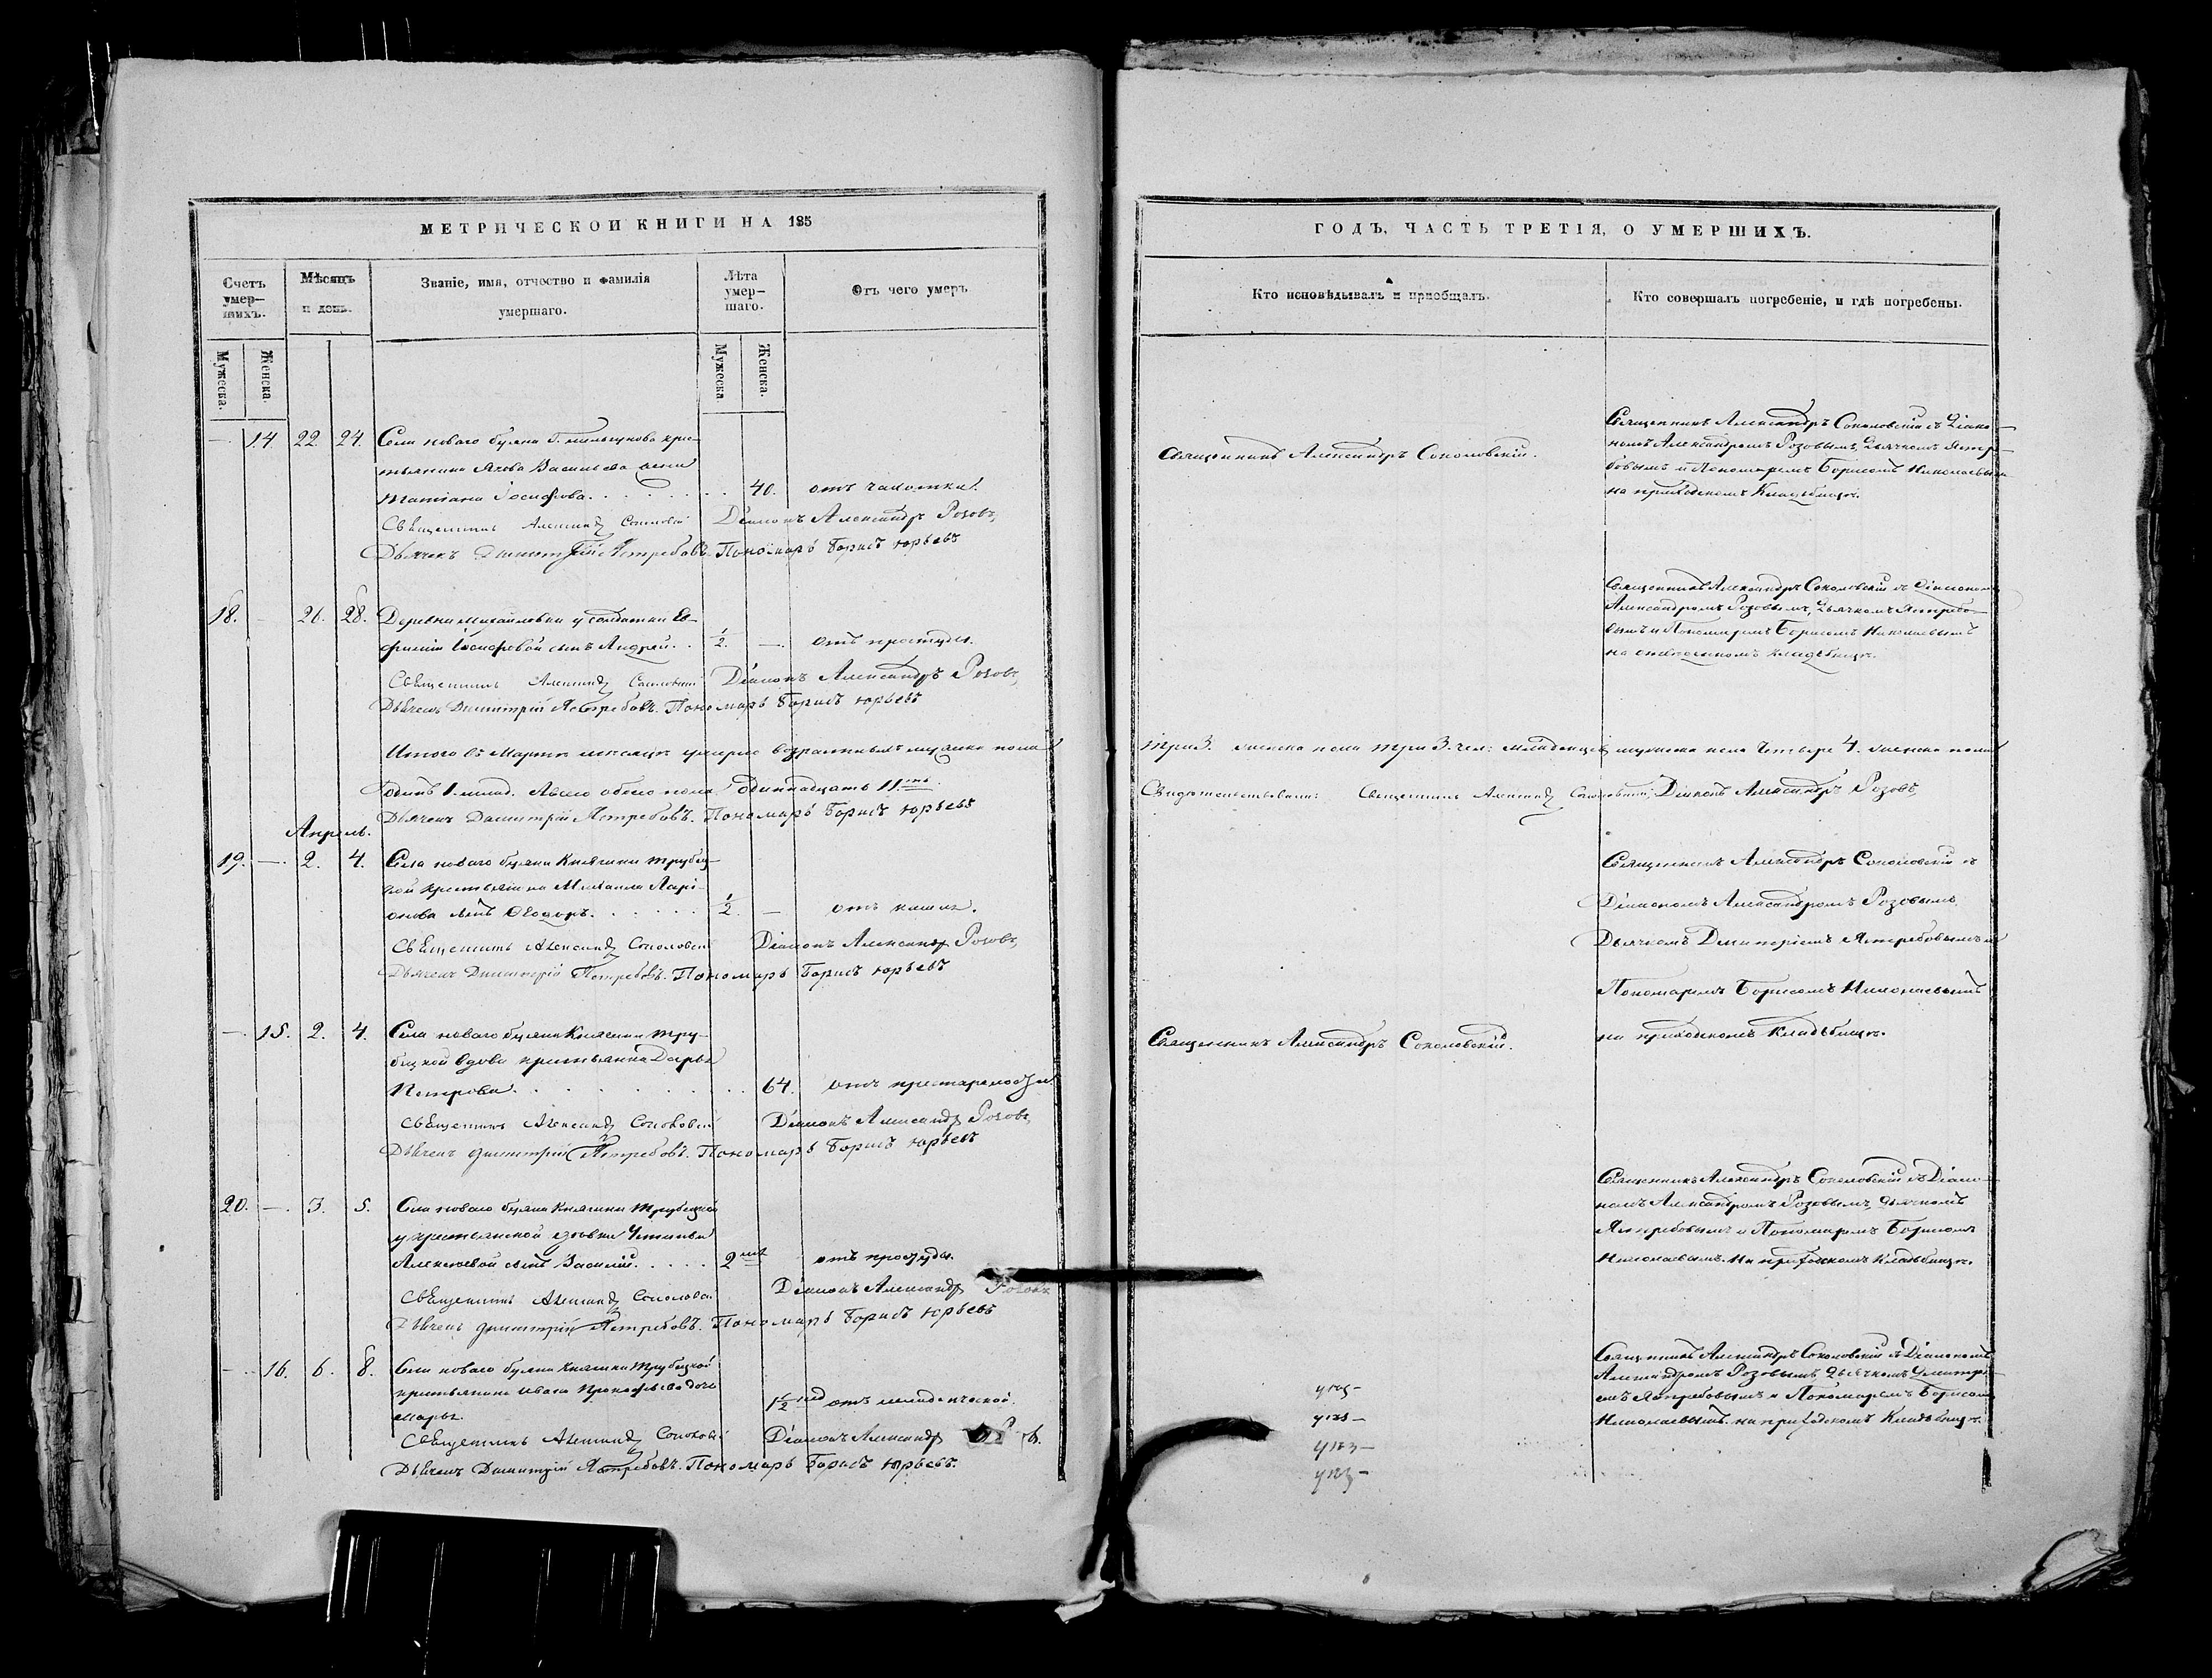 МЕТРИЧЕСКОЙ КНИГИ НА 185
Счетъ умер-шихъ.
Мѣсяцъ и день.
Званіе, имя, отчество и фамилія умершаго.
Лѣта умер-шаго.
Отъ чего умеръ
Мужеска.
Женска.
Мужеска.
Женска.
— 14 22. 24. Села новаго буяна Г. крес-
тьянина Якова Васильева жена
Татіана Іосифова. 40. отъ чахотки.
Священникъ Александръ Соколовскій Діаконъ Александръ Розовъ,
Дьячекъ Димитрій Ястребовъ. Пономарь Борисъ Юрьевъ
18. — 26. 28. Деревни Михайловки у солдатки Ев-
фиміи Іосифовой сынъ Андрей. 1/2. — отъ простуды.
Священникъ Александръ Соколовскій Діаконъ Александръ Розовъ,
Дьячекъ Димитрій Ястребовъ. Пономарь Борисъ Юрьевъ
Итого въ Мартѣ мѣсяцѣ умерло возрастныхъ мужеска пола
одинъ 1. млад. А всего обоего пола одиннадцать 11.
Дьячекъ Димитрій Ястребовъ. Пономарь Борисъ Юрьевъ
Апрѣль.
19. — 2. 4. Села новаго буяна Княгини Трубец-
кой крестьянина Михаила Ларі-
онова сынъ Ѳеодоръ. 1/2. — отъ кашля.
Священникъ Александръ Соколовскій Діаконъ Александръ Розовъ,
Дьячекъ Димитрій Ястребовъ. Пономарь Борисъ Юрьевъ
— 15. 2. 4. Села новаго буяна Княгини Тру-
бецкой вдова крестьянка Дарья
Петрова. 64. отъ престарелости.
Священникъ Александръ Соколовскій Діаконъ Александръ Розовъ,
Дьячекъ Димитрій Ястребовъ. Пономарь Борисъ Юрьевъ
20. — 3. 5. Села новаго буяна Княгини Трубецкой
у крестьянской вдовы Устиньи
Алексѣевой сынъ Василій. 2 отъ простуды.
Священникъ Александръ Соколовскій Діаконъ Александръ Розовъ
Дьячекъ Димитрій Ястребовъ. Пономарь Борисъ Юрьевъ
— 16. 6. 8. Села новаго буяна Княгини Трубецкой
крестьянина Ивана Прокофьева дочь
Марья. 1/2 нед отъ младенческой.
Священникъ Александръ Соколовскій Діаконъ Александръ
Дьячекъ Димитрій Ястребовъ. Пономарь Борисъ Юрьевъ.
ГОДЪ, ЧАСТЬ ТРЕТІЯ, О УМЕРШИХЪ.
Кто исповѣдывалъ и пріобщалъ.
Кто совершалъ погребеніе, и гдѣ погребены.
Священникъ Александръ Соколовскій.
Священникъ Александръ Соколовскій съ Діако-
номъ Александромъ Розовымъ, Дьячкомъ Ястре-
бовымъ и Пономаремъ Борисомъ Николаевымъ
на приходскомъ Кладбищѣ.
Священникъ Александръ Соколовскій съ Діакономъ
Александромъ Розовымъ, Дьячкомъ Ястребо-
вымъ и Пономаремъ Борисомъ Николаевымъ
на кладбищѣ.
три 3. женска пола три 3. чел: младенцевъ мужеска пола четыре 4. женска пола
Свидѣтельствовали: Священникъ Александръ Соколовскій, Діаконъ Александръ Розовъ,
Священникъ Александръ Соколовскій съ
Діакономъ Александромъ Розовымъ,
Дьячкомъ Димитріемъ Ястребовымъ и
Пономаремъ Борисомъ Николаевымъ
на приходскомъ Кладбищѣ.
Священникъ Александръ Соколовскій.
Священникъ Александръ Соколовскій съ Діако-
номъ Александромъ Розовымъ, Дьячкомъ
Ястребовымъ и Пономаремъ Борисомъ
Николаевымъ на приходскомъ Кладбищѣ.
Священникъ Александръ Соколовскій съ Діакономъ
Александромъ Розовымъ, Дьячкомъ Димитрі-
емъ Ястребовымъ и Пономаремъ Борисомъ
Николаевымъ на приходскомъ Кладбищѣ.